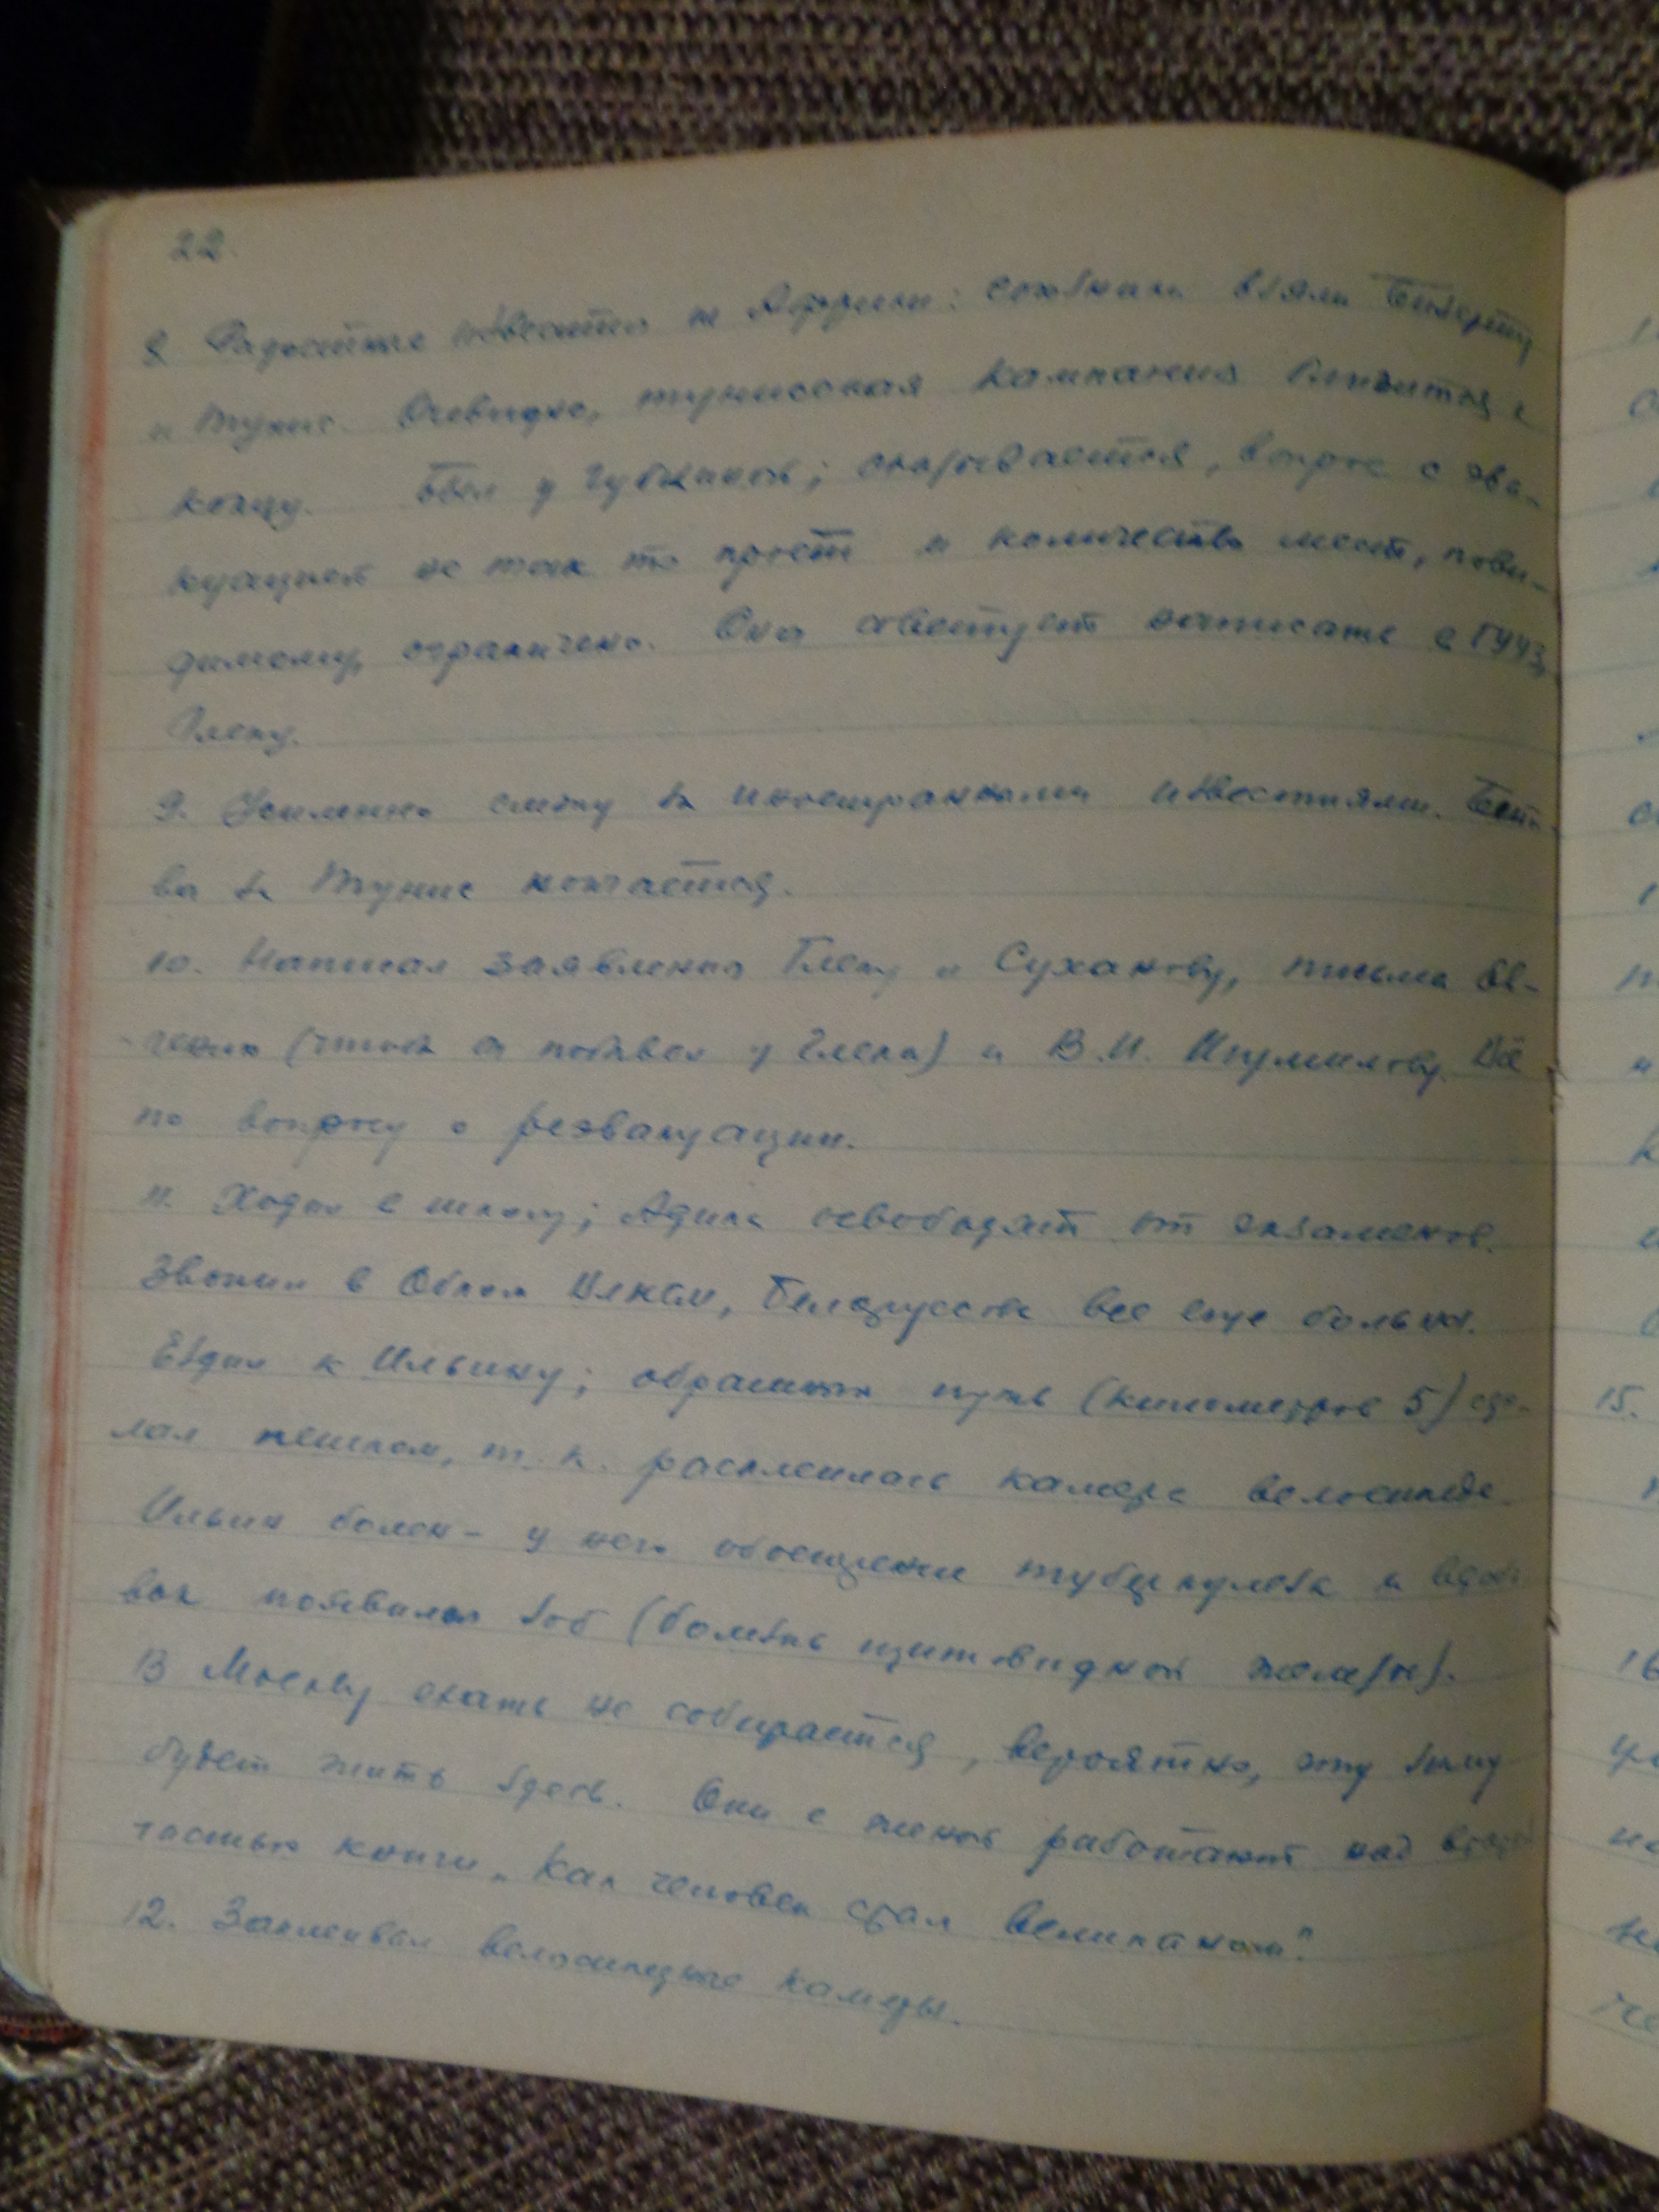 22.
8. Радостные известия из Африки: союзники взяли Бизерту
и Тунис. Очевидно, тунисская кампания близится к
концу. Был у Губкиной; оказывается, вопрос с эва-
куацией не так то прост и количество мест, пови-
димому, ограничено. Она советует написать в ГУУЗ,
Глеку.
9. Усиленно слежу за иностранными известиями. Бит-
ва за Тунис кончается.
10. Написал заявления Глеку и Суханову, письма
(чтоб он побывал у Глека) и В.И. Шумилову. Всё
по вопросу о реэвакуации.
11. Ходил в школу; Адика освободят от экзаменов.
Звонил в Облом ВЛКСМ, Белорусова все еще больна.
Ездил к Ильину; обратный путь (километров 5) сде-
лал пешком, т.к. расклеилась камера велосипеда.
Ильин болен - у него обострение туберкулеза и вдоба-
вок появился зоб (болезнь щитовидной железы).
В Москву ехать не собирается, вероятно, эту зиму
будет жить здесь. Они с женой работают над второй
частью книги „Как человек стал великаном".
12. Заклеивал велосипедные камеры.